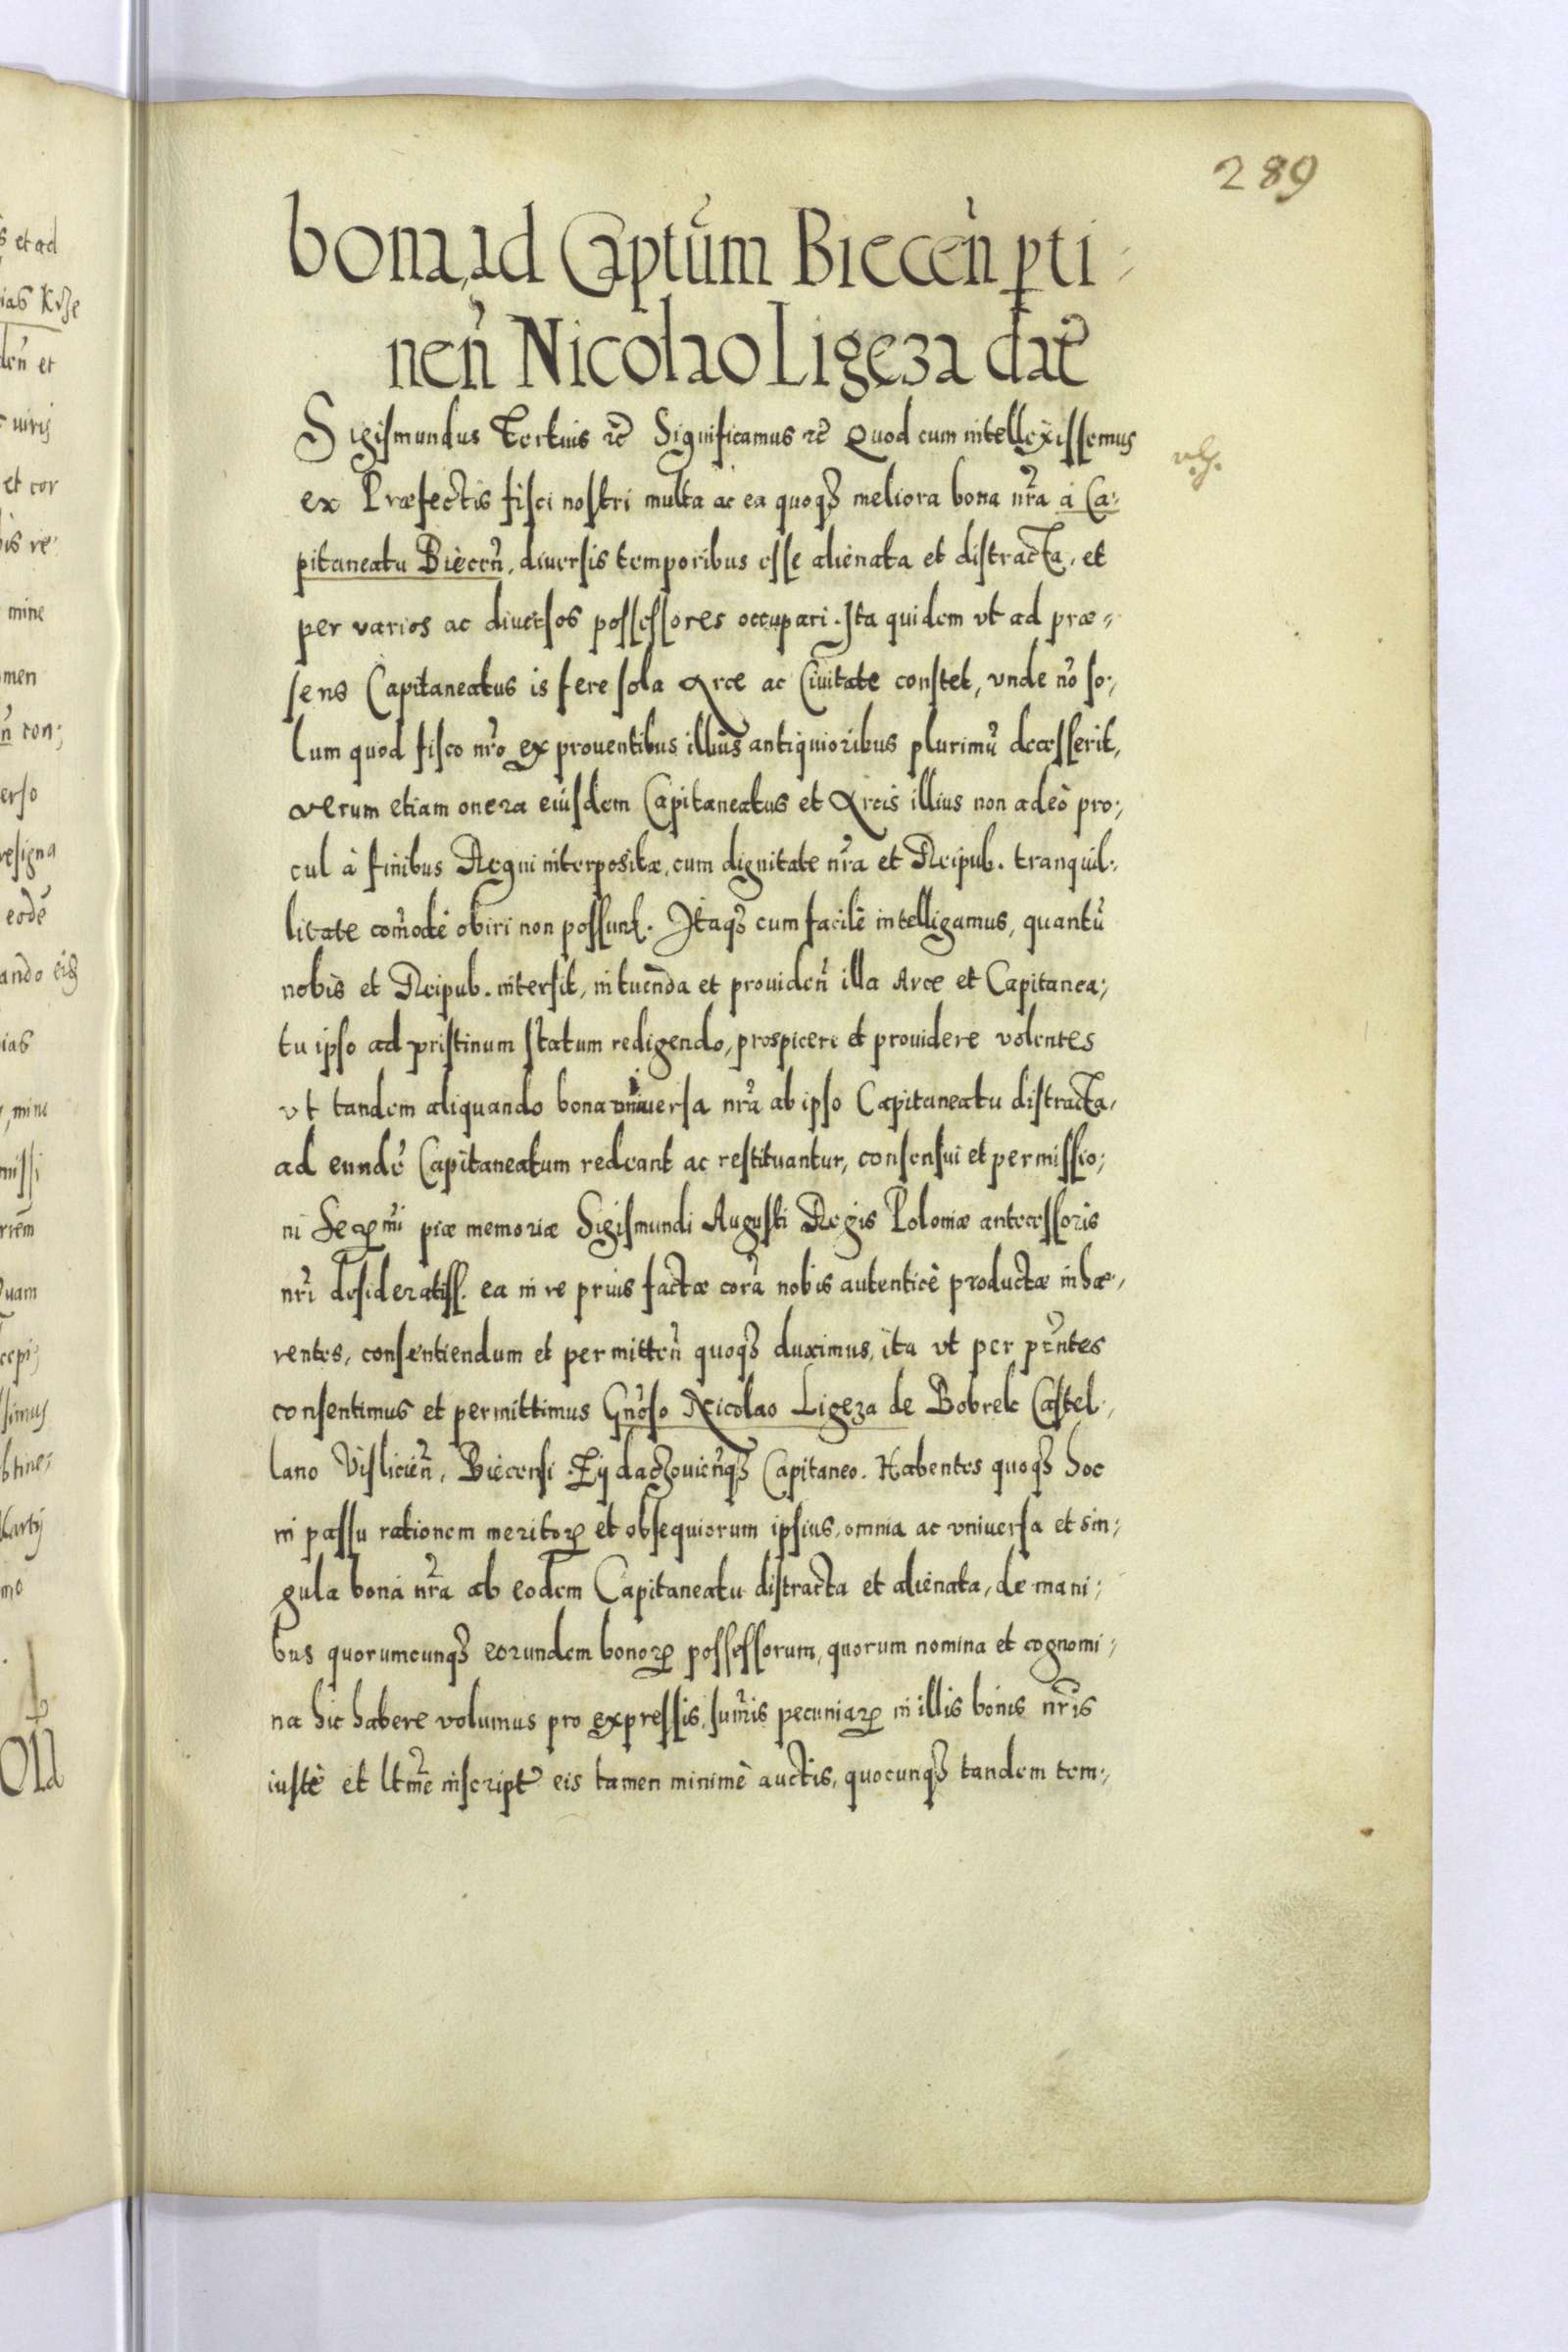 289
bona, ad Captũm Biecceñ ꝑti⸗
neñ Nicolao Ligeza dat̃
Sigismundus Tertius ꝛc̃ Significamus ꝛc̃ Quod cum intellexissemus
ex Præfectis fisci nostri multa ac ea quoqꝫ meliora bona nr̃a à Ca⸗
pitaneatu Biecen̄, diuersis temporibus esse alienata et distracta, et
per varios ac diuersos possessores occupari. Ita quidem vt ad præ⸗
sens Capitaneatus is fere sola Arce ac Ciuitate constet, vnde nõ so⸗
lum quod fisco nr̃o ex prouentibus illius antiquioribus plurimũ decesserit,
verum etiam onera eiusdem Capitaneatus et Arcis illius non adeò pro⸗
cul à finibus Regni interpositæ, cum dignitate nr̃a et Reipub. tranquil⸗
litate com̃odè obiri non possunt. Itaqꝫ cum facilè intelligamus, quantũ
nobis et Reipub. intersit, in tuenda et prouideñ illa Arce et Capitanea⸗
tu ipso ad pristinum statum redigendo, prospicere et prouidere volentes
vt tandem aliquando bona vniuersa nr̃a ab ipso Capitaneatu distracta,
ad eundẽ Capitaneatum redeant ac restituantur, consensui et permissio⸗
ni piæ memoriæ Sigismundi Augusti Regis Poloniæ antecessoris
nr̃i desideratiss. ea in re prius factæ corã nobis autenticè productæ inhæ⸗
rentes, consentiendum et permitteñ quoqꝫ duximus, ita vt per pñtes
consentimus et permittimus Gñoso Nicolao Ligeza de Bobrek Castel⸗
lano Vislicieñ, Biecensi Capitaneo. Habentes quoqꝫ hoc
in passu rationem meritoꝝ et obsequiorum ipsius, omnia ac vniuersa et sin⸗
gula bona nr̃a ab eodem Capitaneatu distracta et alienata, de mani⸗
bus quorumcunqꝫ eorundem bonoꝝ possessorum, quorum nomina et cognomi⸗
na hic habere volumus pro expressis, sum̃is pecuniaꝝ in illis bonis nr̃is
iustè et ltm̃e inscript̃ eis tamen minimè auctis, quocunqꝫ tandem tem⸗